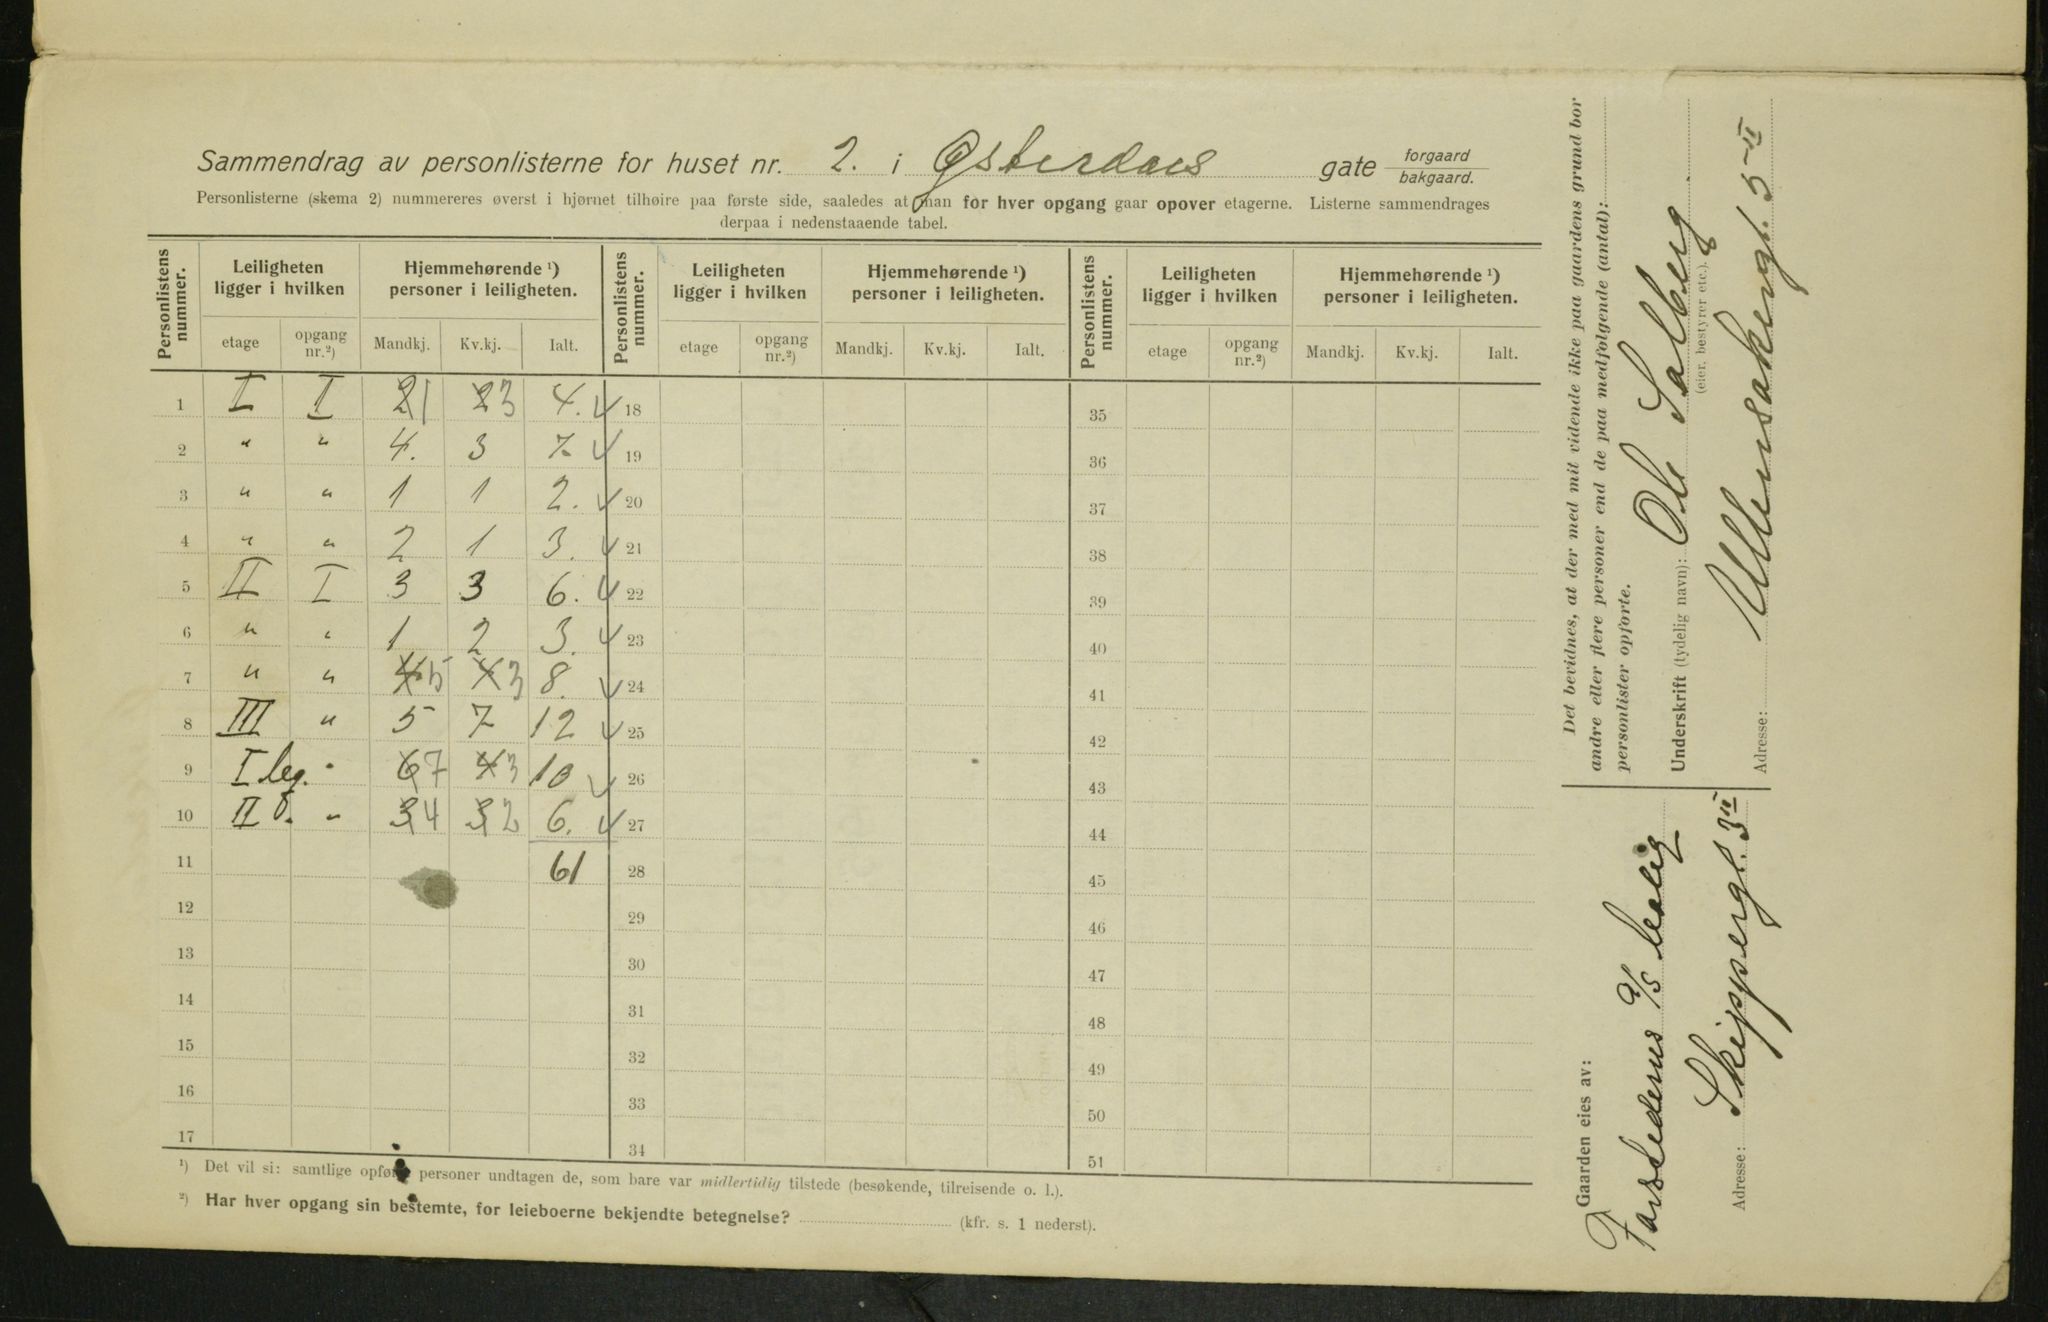 Sammendrag av personlisterne for huset nr. 2. i Østerdals gate forgaard bakgaard.
Personlisterne (skema 2) nummereres øverst i hjørnet tilhøire paa første side, saaledes at man for hver opgang gaar opover etagerne. Listerne sammendrages
derpaa i nedenstaaende tabel.
Personlistens nummer. Leiligheten ligger i hvilken Hjemmehørende ¹) personer i leiligheten. Personlistens nummer. Leiligheten ligger i hvilken Hjemmehørende ¹) personer i leiligheten. Personlistens nummer. Leiligheten ligger i hvilken Hjemmehørende ¹) personer i leiligheten.
etage opgang nr.²) Mandkj. Kv.kj. Ialt. etage opgang nr.²) Mandkj. Kv.kj. Ialt. etage opgang nr.²) Mandkj. Kv.kj. Ialt.
1 I I 21 23 4. √ 18 35
2 " " 4. 3 7 √ 19 36
3 " " 1 1 2. √ 20 37
4 " " 2 1 3. √ 21 38
5 II I 3 3 6. √ 22 39
6 " " 1 2 3. √ 23 40
7 " " 45 43 8. √ 24 41
8 III " 5 7 12 √ 25 42
9 I leg. " 67 43 10 √ 26 43
10 II " " 34 32 6. √ 27 44
11 61 28 45
12 29 46
13 30 47
14 31 48
15 32 49
16 33 50
17 34 51
¹) Det vil si: samtlige opførte personer undtagen de, som bare var midlertidig tilstede (besøkende, tilreisende o. l.).
²) Har hver opgang sin bestemte, for leieboerne bekjendte betegnelse? (kfr. s. 1 nederst).
Det bevidnes, at der med mit vidende ikke paa gaardens grund bor
andre eller flere personer end de paa medfølgende (antal):
personlister opførte.
Underskrift (tydelig navn): Ole Solberg.
(eier, bestyrer etc.).
Adresse: Ullensakergt. 5 II
Gaarden eies av:
A/S Bolig
Adresse: Skippergt. 3 II